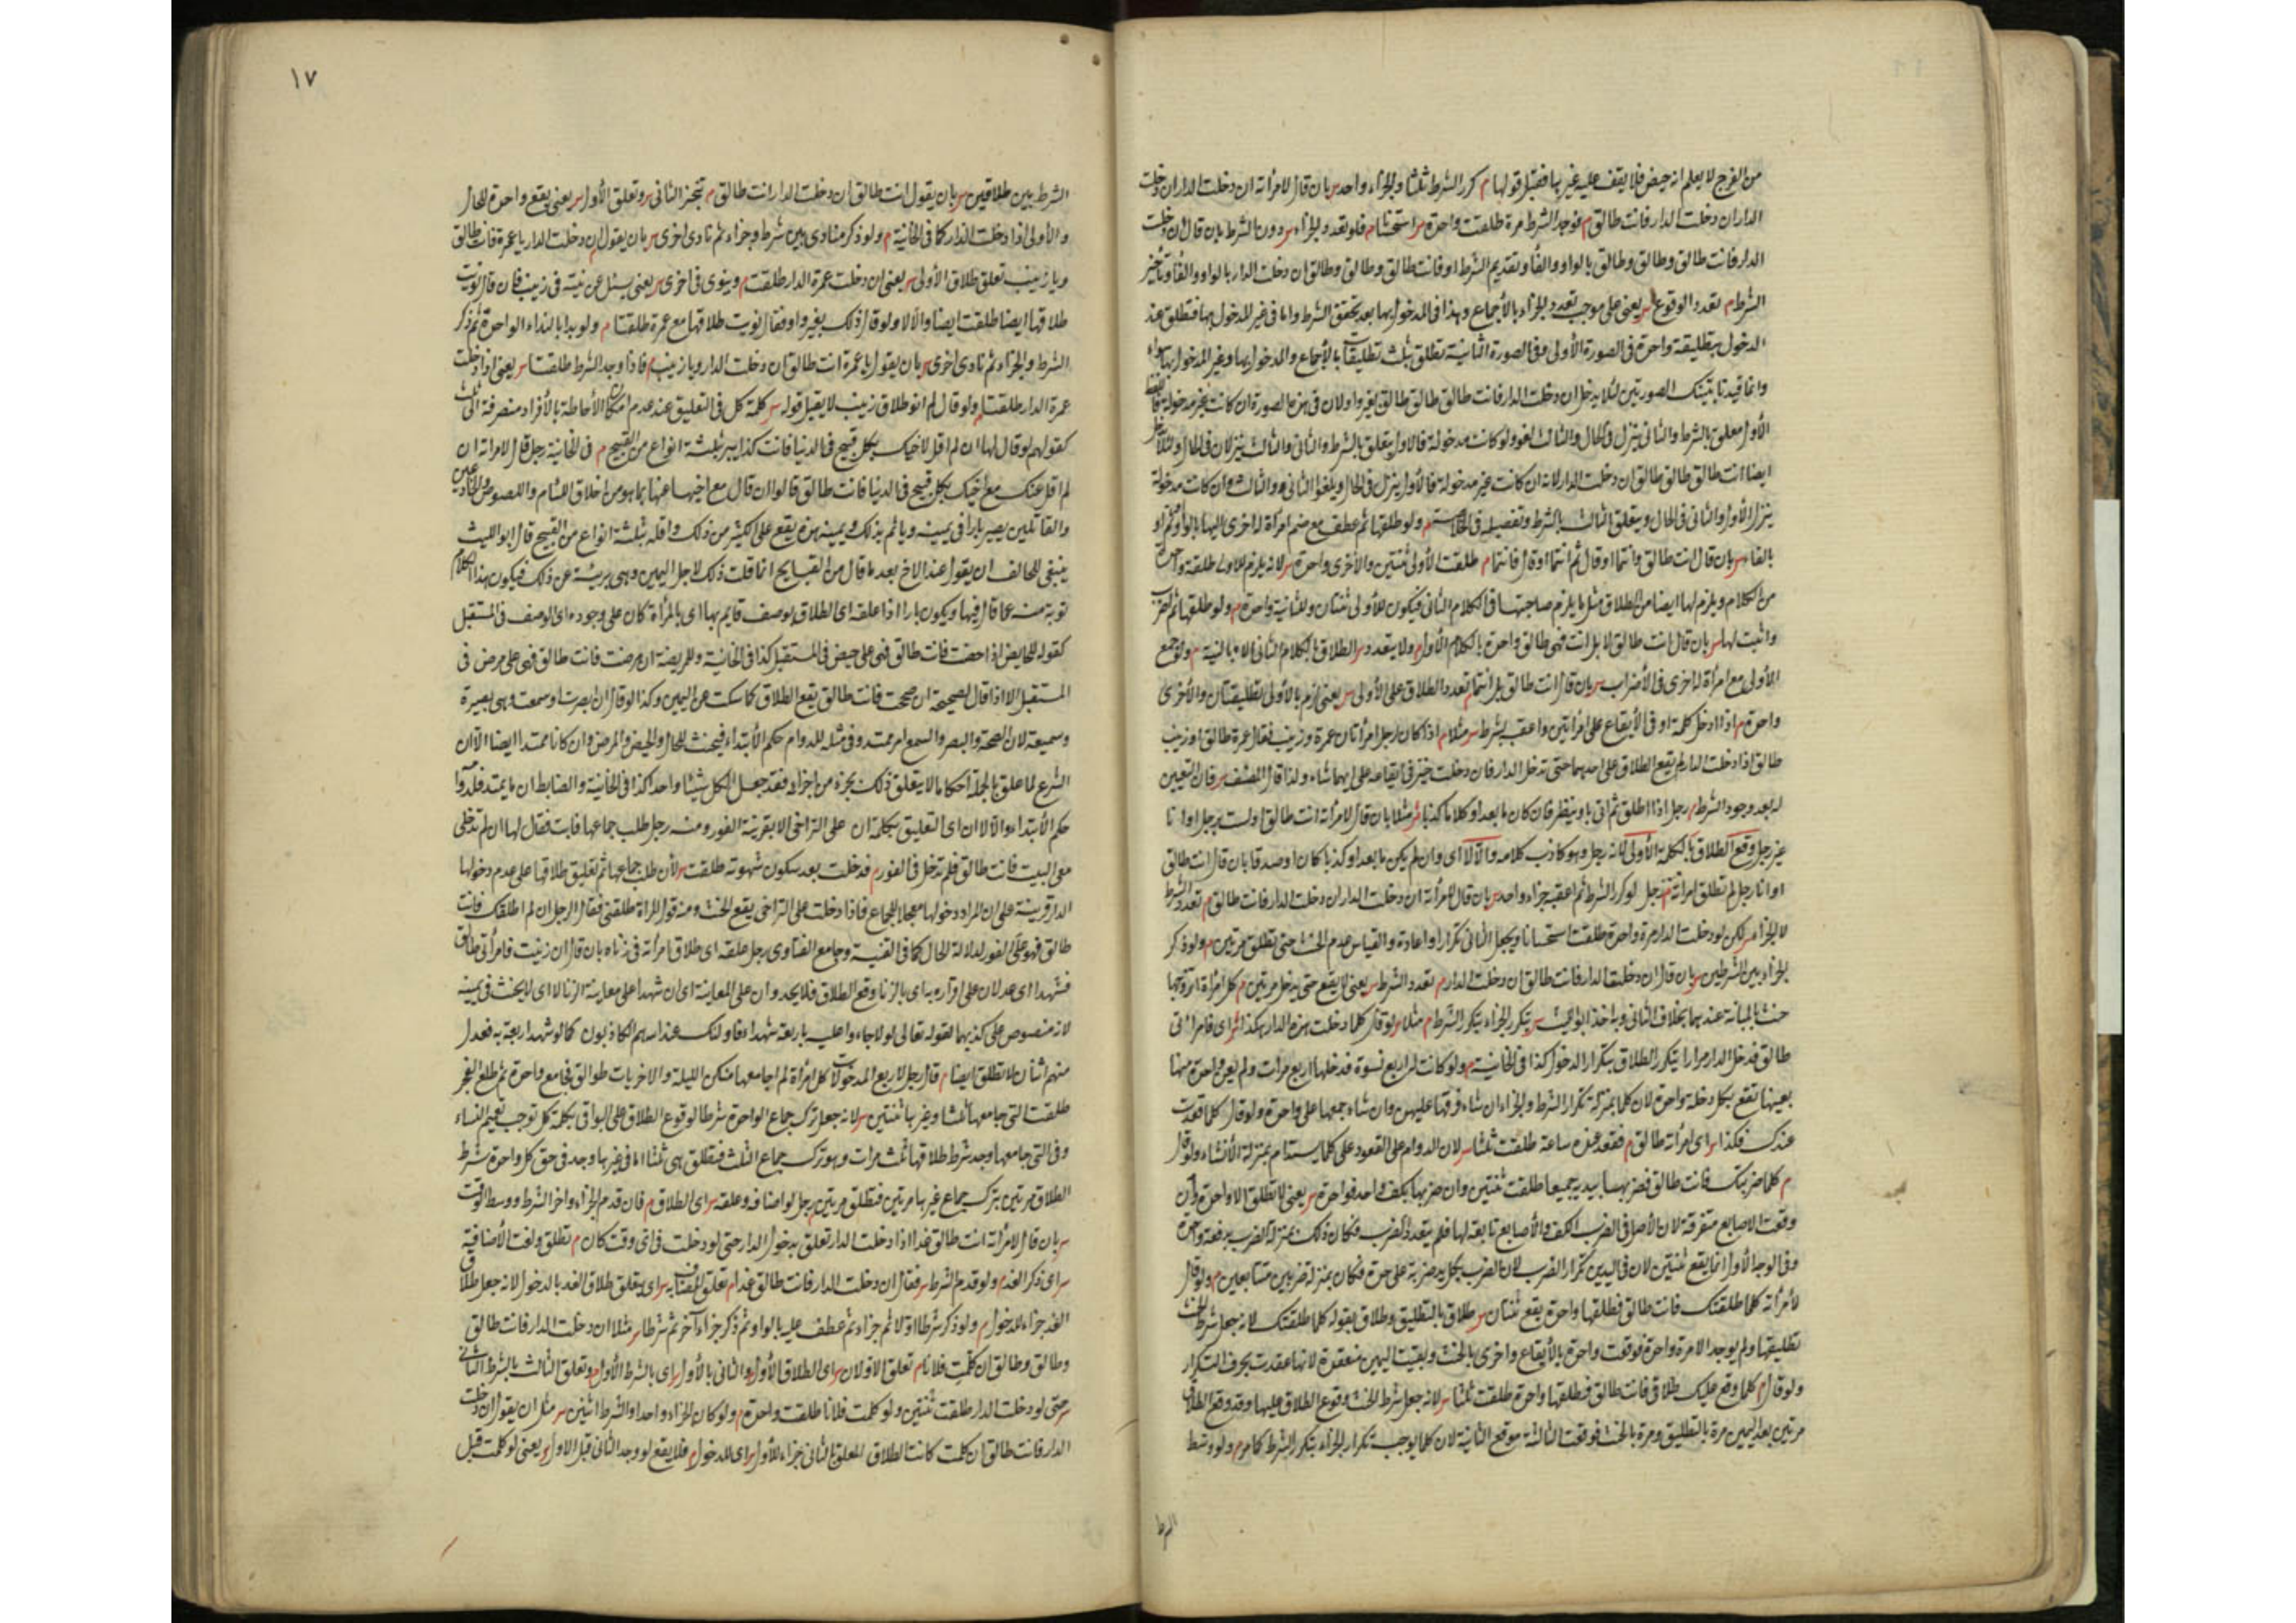 من الفرج لا يعلم انه حيض فلا يقف عليه غيرها فيقبل قولها م كرر الشرط ثلثا والجزاء واحد س بان قال لامرأته ان دخلت الدار ان دخلت
الدار ان دخلت الدار فانت طالق م فوجد الشرط مرة طلقت واحدة س استحسانا م فلو تعدد الجزاء س دون الشرط بان قال ان دخلت
الدار فانت طالق وطالق وطالق بالواو والفاء وتقديم الشرط او فانت طالق وطالق وطالق ان دخلت الدار بالواو والفاء وتأخير
الشرط م تعدد الوقوع س يعنى على موجب تعدد الجزاء بالأجماع وهذا فى المدخول بها بعد تحقق الشرط واما فى غير المدخول بها فتطلق عند
الدخول بتطليقة واحدة فى الصورة الأولى وفى الصورة الثانية تطلق بثلث تطليقات بالأجماع والمدخول بها وغير المدخول بها سواء
وانما قيدنا بتينك الصورتين لئلا يدخل ان دخلت الدار فانت طالق طالق طالق بغير واو لان فى هذه الصورة ان كانت غير مدخولة
الأول معلق بالشرط والثانى ينزل فى الحال والثالث لغو ولو كانت مدخولة فالاول يتعلق بالشرط والثانى والثالث ينزلان فى الحال
ايضا انت طالق طالق طالق ان دخلت الدار لانه ان كانت غير مدخولة فالأول ينزل فى الحال ويلغو الثانى والثالث وان كانت مدخولة
ينزل الأول والثانى فى الحال ويتعلق الثالث بالشرط وتفصيله فى م ولو طلقها ثم عطف مع ضم امرأة اخرى اليها بالواو
بالفاء س بان قال انت طالق وانتما او قال ثم انتما او قال فانتما م طلقت الأولى ثنتين والأخرى واحدة س لانه يلزم للاولى طلقة واحدة
من الكلام ويلزم لها ايضا من الطلاق مثل ما يلزم صاحبتها فى الكلام الثانى فيكون للأولى ثنتان وللثانية واحدة م ولو طلقها ثم اضرب
واثبت لها س بان قال انت طالق لا بل انت فهى طالق واحدة بالكلام الأول م ولا يتعدد س الطلاق بالكلام الثانى الا بالنية م ولو جمع
الأولى مع امرأة اخرى فى الأضراب س بان قال انت طالق بل انتما م تعدد الطلاق على الأولى س يعنى لزم بالأولى تطليقتان والأخرى
واحدة م اذا ادخل كلمة او فى الأيقاع على امرأتين واعقب بشرط س مثلا م اذا كان لرجل امرأتان عمرة وزينب فقال عمرة طالق او زينب
طالق اذا دخلت الدار لم يقع الطلاق على احديهما حتى تدخل الدار فان دخلت خير فى ايقاعه على ايهما شاء ولذا قال المصنف س فان التعيين
له بعد وجود الشرط م رجل اذا طلق ثم اتى باو ينظر فان كان ما بعد او كلاما كذبا س مثلا بان قال لامرأته انت طالق او لست برجل او انا
غير رجل وقع الطلاق بالكلمة الأولى لانه رجل وهو كاذب كلامه والا لا اى وان لم يكن ما بعد او كذبا كان او صدقا بان قال انت طالق
او انا رجل لم تطلق امرأته م رجل لو كرر الشرط ثم اعقب جزاء واحد س بان قال لامرأته ان دخلت الدار ان دخلت الدار فانت طالق م تعدد الشرط
لا الجزاء س لكن لو دخلت الدار مرة واحدة طلقت استحسانا ويجعل الثانى تكرارا واعادة والقياس عدم الحنث حتى تطلق مرتين م ولو ذكر
الجزاء بين الشرطين س بان قال ان دخلت الدار فانت طالق ان دخلت الدار م تعدد الشرط س يعنى لا يقع حتى يدخل مرتين م كل امرأة اتزوجها
حنث بالمبانة عندهما بخلاف الثانى وبه اخذ ابو الليث س يتكرر الجزاء بتكرر الشرط م مثلا س لو قال كلما دخلت هذه الدار هكذا س اى فامرأتى
طالق فدخل الدار مرارا يتكرر الطلاق بتكرار الدخول كذا فى الخانية م ولو كانت له اربع نسوة فدخلها اربع مرات ولم يعن واحدة منها
بعينها تقع بكل دخلة واحدة لان كلما بمنزلة تكرار الشرط والجزاء ان شاء فرقها عليهن وان شاء جمعها على واحدة ولو قال كلما قعدت
عندك فكذا س اى امرأته طالق م فقعد عنده ساعة طلقت ثلثا س لان الدوام على القعود على كل ما يستدام بمنزلة الأنشاء ولو قال
م كلما ضربتك فانت طالق فضربها بيديه جميعا طلقت ثنتين وان ضربها بكف واحد فواحدة س يعنى لا تطلق الا واحدة وان
وقعت الاصابع متفرقة لان الأصل فى الضرب الكف والأصابع تابعة لها فلم يتعدد الضرب فكان ذلك بمنزلة الضرب بدفعة واحدة
وفى الوجه الأول انما يقع ثنتين لان فى اليدين تكرار الضرب لان الضرب بكل يد ضربة على حدة فكان بمنزلة ضربين متتابعين م ولو قال
لأمرأته كلما طلقتك فانت طالق فطلقها واحدة يقع ثنتان س طلاق بالتطليق وطلاق بقوله كلما طلقتك لانه جعل شرط الحنث
تطليقها ولم يوجد الا مرة واحدة فوقعت واحدة بالأيقاع واخرى بالحنث وبقيت اليمين منعقدة لانها عقدت بحرف التكرار
ولو قال م كلما وقع عليك طلاقى فانت طالق فطلقها واحدة طلقت ثلثا س لانه جعل شرط الحنث وقوع الطلاق عليها وقد وقع الطلاق
مرتين بعد اليمين مرة بالتطليق ومرة بالحنث فوقعت الثالثة بوقوع الثانية لان كلما يوجب تكرار الجزاء بتكرر الشرط كما مر م ولو وسط
الشرط
١٧
الشرط بين طلاقين س بان يقول انت طالق ان دخلت الدار انت طالق م تنجز الثانى س وتعلق الأول س يعنى يقع واحدة للحال
والأولى اذا دخلت الدار كما فى الخانية م ولو ذكر منادى بين شرط وجزاء ثم نادى اخرى س بان يقول ان دخلت الدار يا عمرة فانت طالق
ويا زينب تعلق طلاق الأولى س يعنى ان دخلت عمرة الدار طلقت م وينوى فى اخرى س يعنى يسئل عن نيته فى زينب فان قال نويت
طلاقها ايضا طلقت ايضا والا لا ولو قال ذلك بغير واو فقال نويت طلاقها مع عمرة طلقتا م ولو بدا بالنداء الواحدة ثم ذكر
الشرط والجزاء ثم نادى اخرى س بان يقول يا عمرة انت طالق ان دخلت الدار ويا زينب م فاذا وجد الشرط طلقتا س يعنى اذا دخلت
عمرة الدار طلقتا م ولو قال لم انو طلاق زينب لا يقبل قوله س كلمة كل فى التعليق عند عدم امكان الأحاطة بالأفراد منصرفة الى ثلث
كقولهم لو قال لها ان لم اقل لاخيك بكل قبيح فى الدنيا فانت كذا يبر بثلثة انواع من القبيح م فى الخانية رجل قال لامرأته ان
لم اقل عنك مع اخيك بكل قبيح فى الدنيا فانت طالق قالوا ان قال مع اخيها عنها بما هو من اخلاق اللئام واللصوص والخادعين
والقاتلين يصير بارا فى يمينه ويأثم بذلك ويمينه هذه يقع على اكثر من ذلك واقله بثلثة انواع من القبيح قال ابو الليث
ينبغى للحالف ان يقول عند الاخ بعد ما قال من القبايح انما قلت ذلك لاجل اليمين وهى بريئة عن ذلك فيكون هذا الكلام
توبة منه عما قال فيها ويكون بارا اذا علقه اى الطلاق بوصف قايم بها اى بالمرأة كان على وجوده اى الوصف فى المستقبل
كقوله للحايض اذا حضت فانت طالق فهى على حيض فى المستقبل كذا فى الخانية وللمريضة ان مرضت فانت طالق فهى على مرض فى
المستقبل الا اذا قال لصحيحة ان صححت فانت طالق يقع الطلاق كما سكت عن اليمين وكذا لو قال ان ابصرت او سمعت وهى بصيرة
وسميعة لان الصحة والبصر والسمع امر ممتد وفى مثله للدوام حكم الأبتداء فيحنث للحال والحيض والمرض وان كانا ممتدا ايضا الا ان
الشرع لما علق بالجملة احكاما لا يتعلق ذلك بجزء من اجزائه فقد جعل الكل شيئا واحدا كذا فى الخانية والضابط ان ما يمتد فلدوامه
حكم الأبتداء والا لا ان اى التعليق بكلمة ان على التراخى الا بقرينة الفور ومنه رجل طلب جماعها فابت فقال لها ان لم تدخلى
معى البيت فانت طالق فلم تدخل فى الفور م فدخلت بعد سكون شهوته طلقت س لأن طلب جماعها ثم تعليق طلاقها على عدم دخولها
الدار قرينة على ان المراد دخولها معجلا للجماع فاذا دخلت على التراخى يقع الحنث ومنه قول المرأة طلقنى فقال الرجل ان لم اطلقك فانت
طالق فهو على الفور لدلالة الحال كما فى القنية وجامع الفتاوى رجل علقه اى طلاق امرأته فى زناه بان قال ان زنيت فامرأتى طالق
فشهدا اى عدلان على اقراره به اى بالزنا وقع الطلاق فلا يحد وان على المعاينة اى ان شهدا على معاينة الزنا لا اى لا يحنث فى يمينه
لانه منصوص على كذبهما لقوله تعالى لولا جاءوا عليه باربعة شهداء فاولئك عند الله هم الكاذبون كما لو شهد اربعة به فعدل
منهم اثنان لا تطلق ايضا م قال رجل لاربع المدخولات كل امرأة لم اجامعها منكن الليلة والاخريات طوالق فجامع واحدة ثم طلع الفجر
طلقت التى جامعها ثلثا وغيرها ثنتين س لانه جعل ترك جماع الواحدة شرطا لوقوع الطلاق على البواقى بكلمة كل توجب تعميم النساء
وفى التى جامعها وجد شرط طلاقها ثلث مرات وهو ترك جماع الثلث فتطلق هى ثلثا اما فى غيرها وجد فى حق كل واحدة شرط
الطلاق مرتين بترك جماع غيرها مرتين فتطلق مرتين م رجل لو اضافه وعلقه س اى الطلاق م فان قدم الجزاء واخر الشرط ووسط الوقت
س بان قال لأمرأته انت طالق غدا اذا دخلت الدار تعلق بدخول الدار حتى لو دخلت فى اى وقت كان م تطلق ولغت الأضافة
س اى ذكر الغد م ولو قدم الشرط س فقال ان دخلت الدار فانت طالق غدا م تعلق المضاف به س اى يتعلق طلاق الغد بالدخول لانه جعل طلاق
الغد جزاء للدخول م ولو ذكر شرطا اولا ثم جزاء ثم عطف عليه بالواو ثم ذكر جزاء آخر ثم شرطا س مثلا ان دخلت الدار فانت طالق
وطالق وطالق ان كلمت فلانا م تعلق الاولان س اى الطلاق الأول والثانى بالأول س اى بالشرط الأول م وتعلق الثالث بالشرط الثانى
س حتى لو دخلت الدار طلقت ثنتين ولو كلمت فلانا طلقت واحدة م ولو كان الجزاء واحدا والشرط اثنين س مثل ان يقول ان دخلت
الدار فانت طالق ان كلمت كانت الطلاق المعلق بالثانى جزاء للأول س اى للدخول م فلا يقع لو وجد الثانى قبل الاول س يعنى لو كلمت قبل